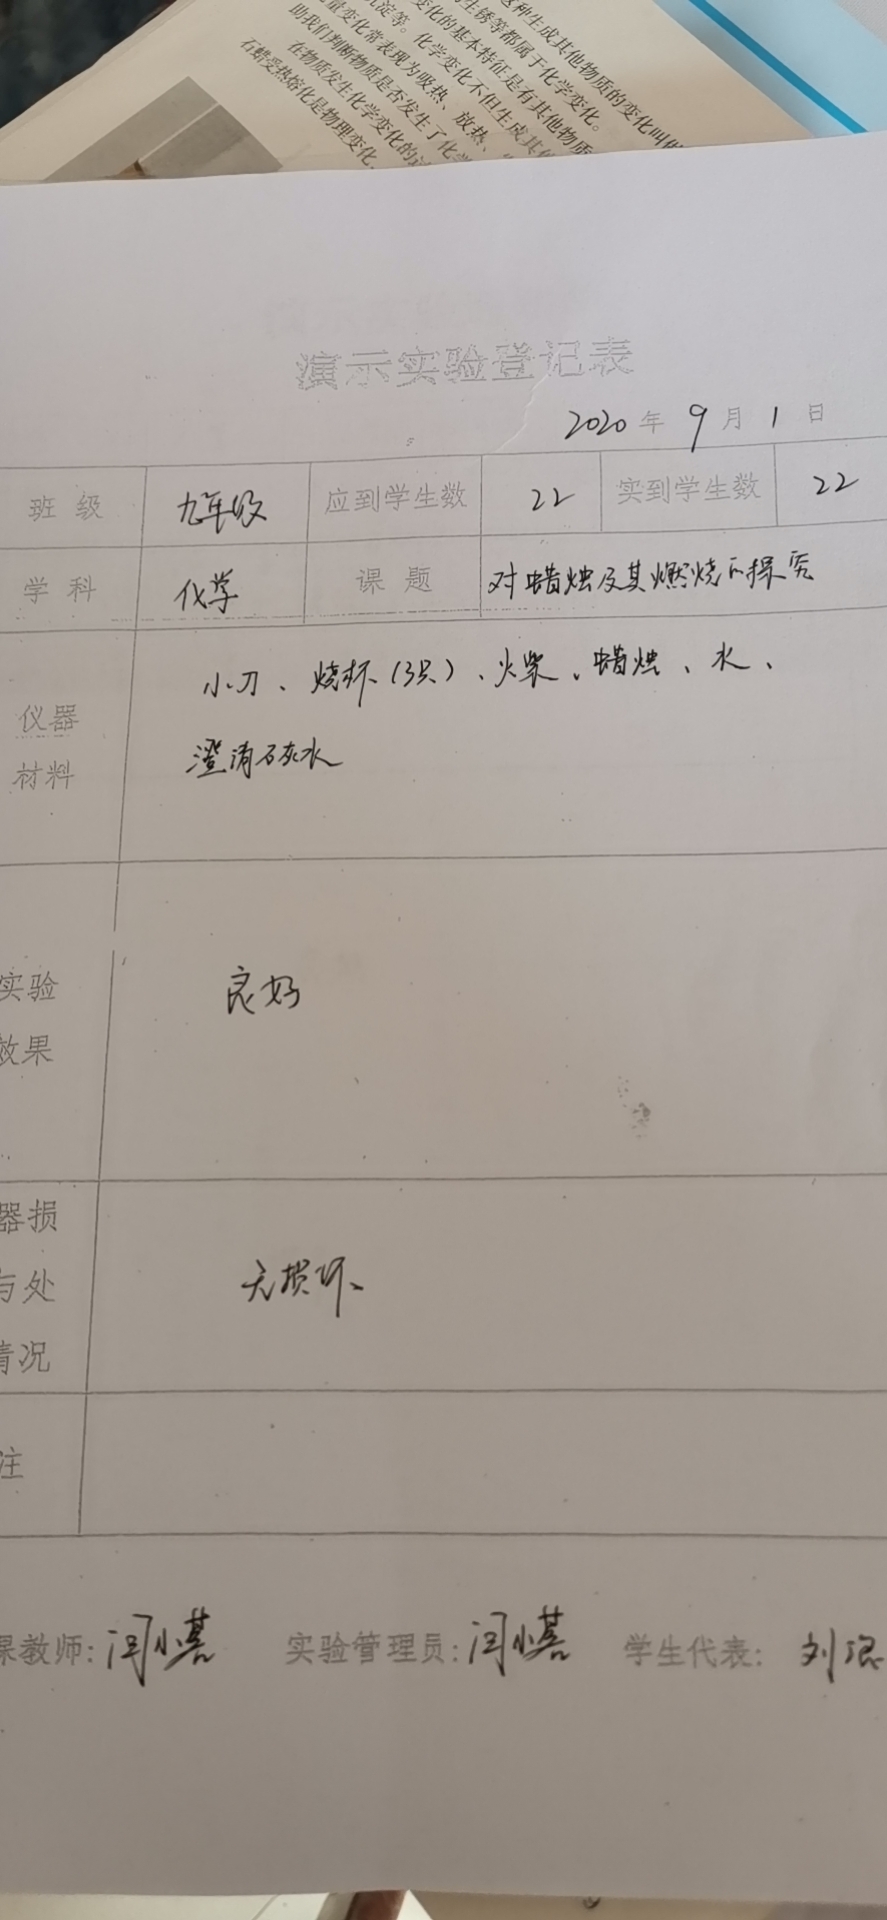 这种生成其他物质的变化叫做
生锈等都属于化学变化。
变化的基本特征是有其他物质
沉淀等。化学变化不但生成其他
量变化常表现为吸热、放热、
助我们判断物质是否发生了化学
在物质发生化学变化的过
石蜡受热熔化是物理变化,
演示实验登记表
2020年9月1日
班级 九年级 应到学生数 22 实到学生数 22
学科 化学 课题 对蜡烛及其燃烧的探究
仪器 小刀、烧杯(3只)、火柴、蜡烛、水、
材料 澄清石灰水
实验
效果 良好
器损
与处 无损坏
情况
注
课教师: 闫小 实验管理员: 闫小 学生代表: 刘